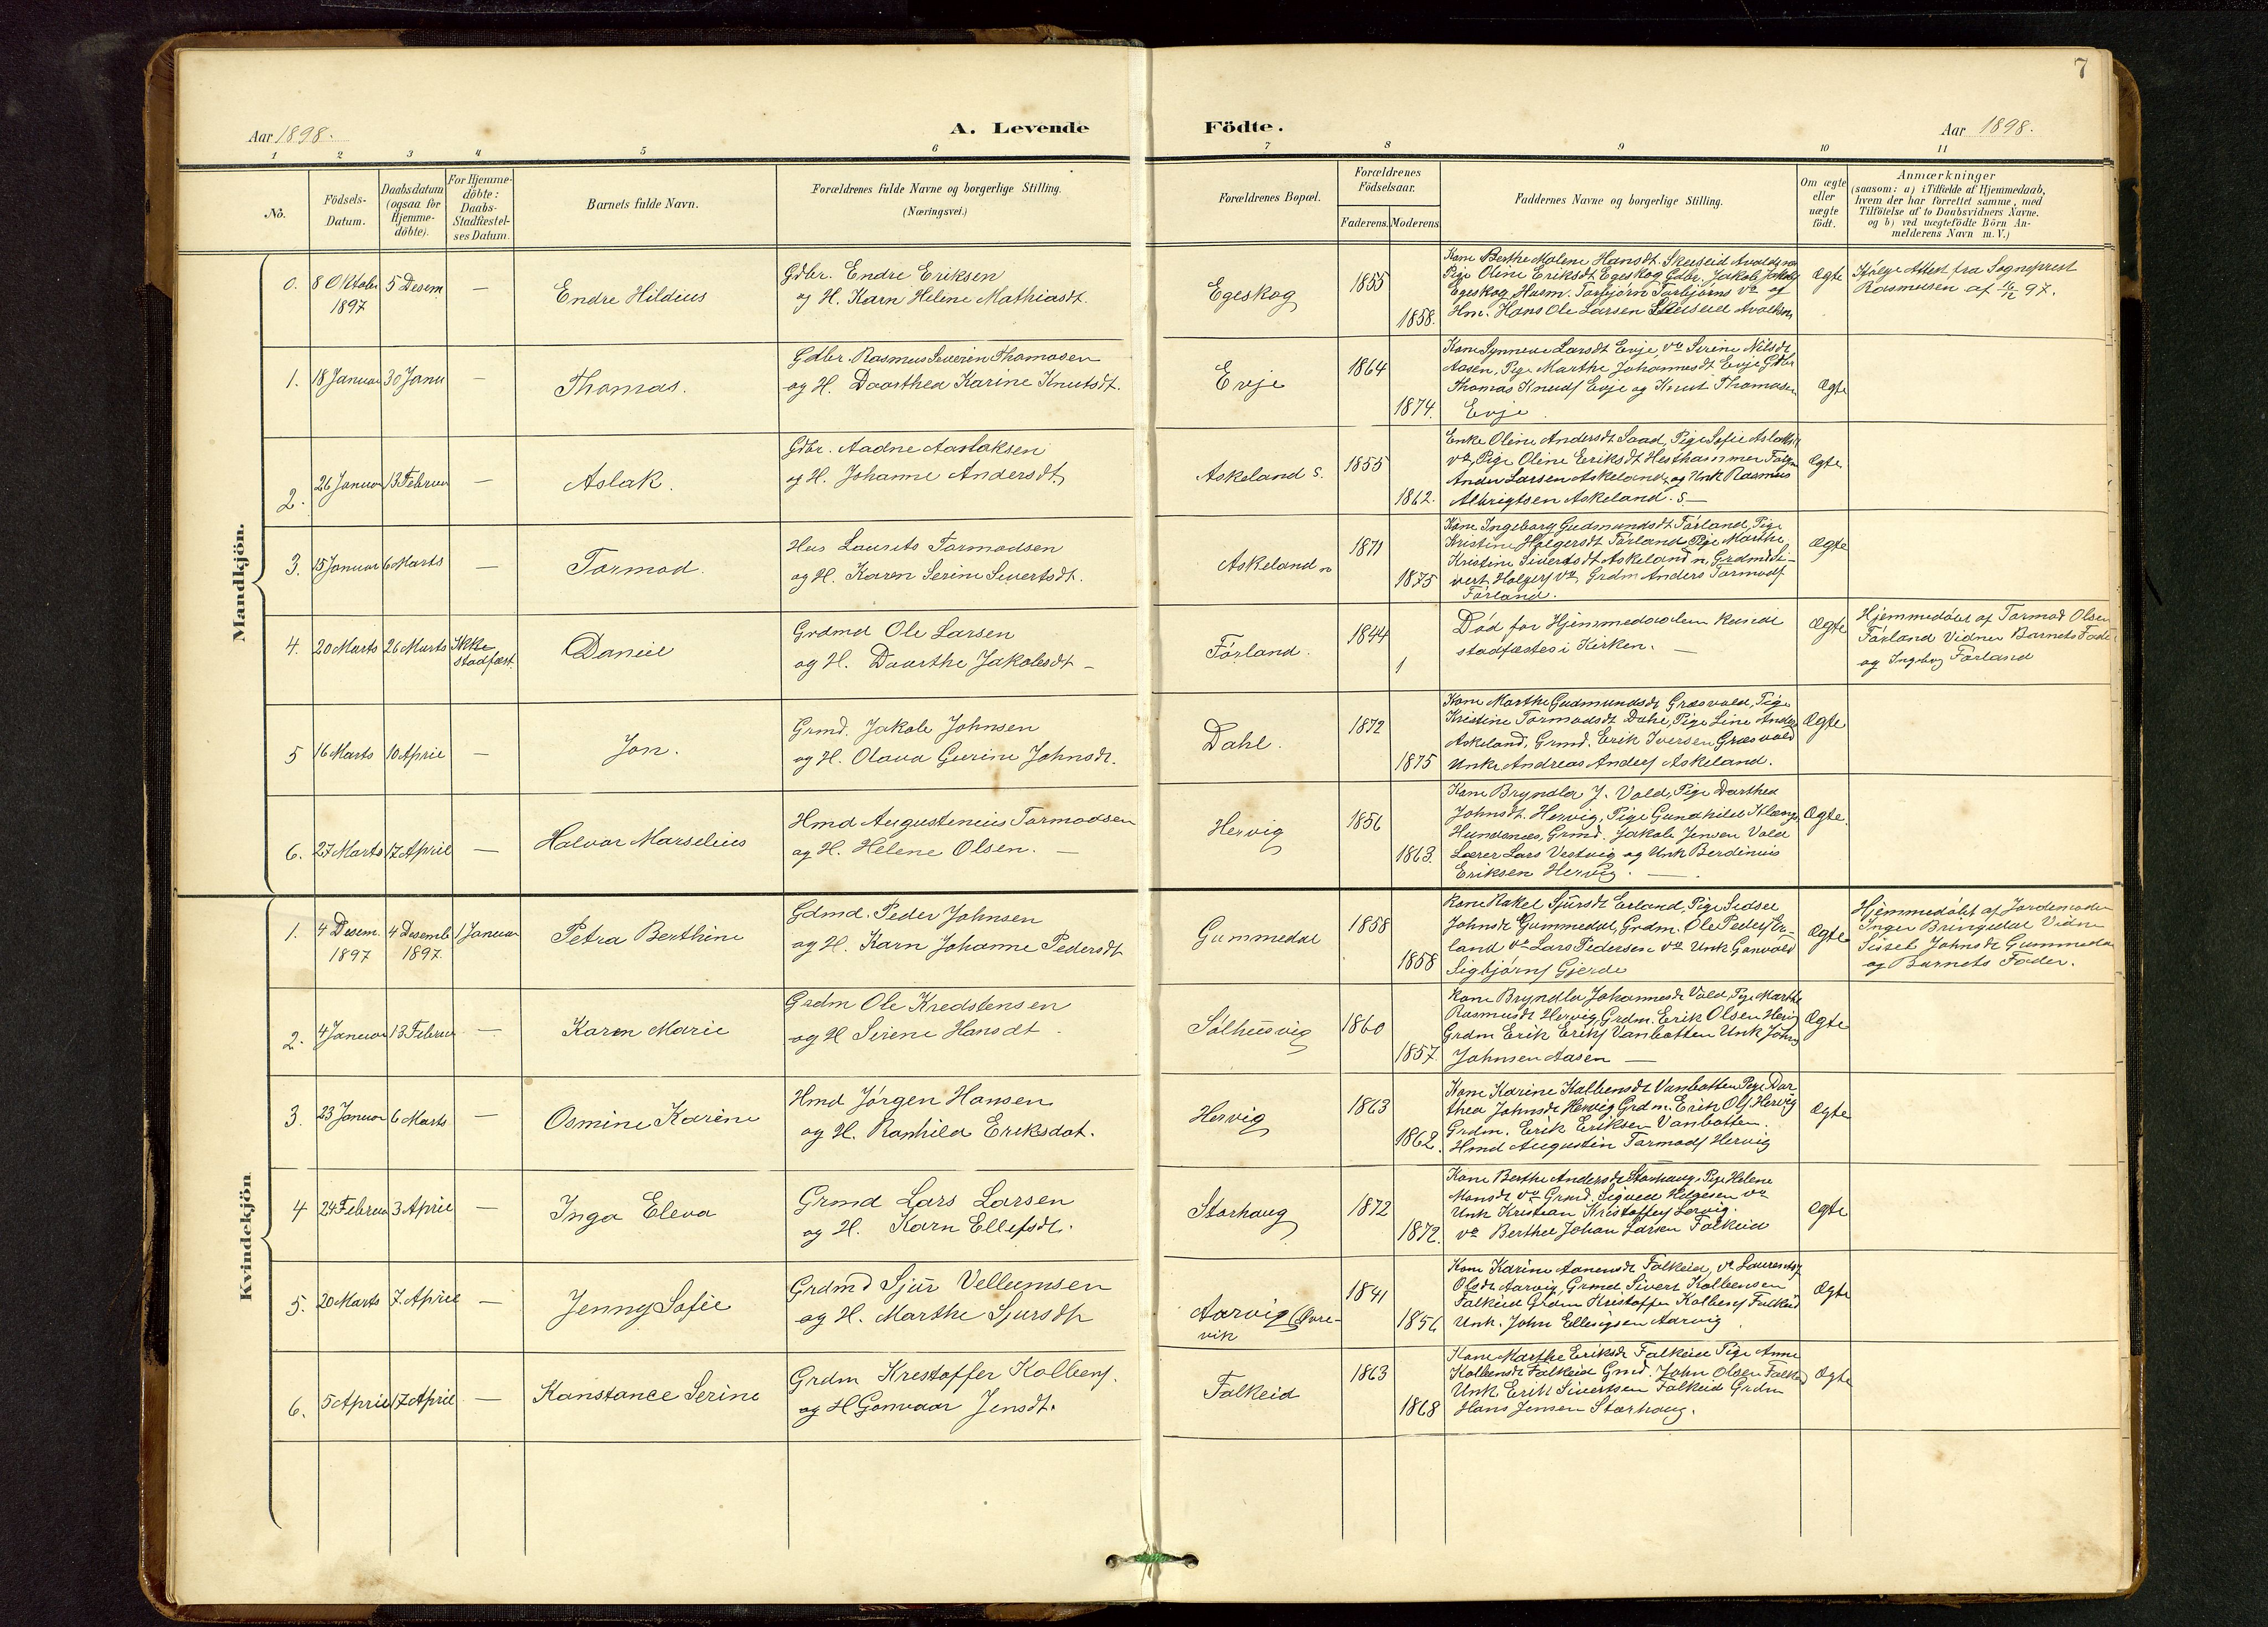 7
Aar 1898.
A. Levende Födte.
Aar 1898.
1 2 3 4 5 6 7 8 9 10 11
No.
Födsels-Datum.
Daabsdatum (ogsaa for Hjemme-döbte).
For Hjemme-döbte: Daabs-Stadfæstel-ses Datum.
Barnets fulde Navn.
Forældrenes fulde Navne og borgerlige Stilling.
(Næringsvei.)
Forældrenes Bopæl.
Forældrenes Födselsaar.
Faderens. Moderens
Faddernes Navne og borgerlige Stilling.
Om ægte eller uægte födt.
Anmærkninger
(saasom: a) i Tilfælde af Hjemmedaab,
hvem der har forrettet samme, med
Tilföielse af to Daabsvidners Navne.
og b) ved uægtefödte Börn An-
melderens Navn m. V.)
Mandkjön.
0. 8 Oktober 1897 5 Desem — Endre Hildius
Gdbr. Endre Eriksen
og H. Karn Heline Mathiasdt.
Egeskog 1855 1858.
Kone Berthe Malene Hansdt. Skeiseid
Pige Oline Eriksdt Egeskog Gdbr. Jakob
Egeskog Husm. Torbjörn Torbjörns vd og
Hm. Hans Ole Larsen
Ægte
Ifölge Attest fra Sogneprest
Rasmusen af 16/12 97.
1. 18 Januar 30 Janu — Thomas.
Gdbr. Rasmus Severin Thomasen
og H. Daarthea Karine Knutsdt.
Evje 1864 1874.
Kone Synneve Larsdt Evje, vd Serine Nilsdt
Aasen, Pige Marthe Johannesdt Evje Gdbr
Thomas Knuds Evje og Knut Thomasen
Evje.
Ægte
2. 26 Januar 13 Februar — Aslak.
Gdbr. Aadne Aaslaksen
og H. Johanne Andersdt.
Askeland s. 1855 1862.
Enke Oline Andersdt Saad, Pige Sofie
vd, Pige Oline Eriksdt Hesthammer
Ander Larsen Askeland og Unk Rasmus
Albrigtsen Askeland. s —
Ægte
3. 15 Januar 6 Marts — Tormod.
Hus Laurits Tormodsen
og H. Karen Serine Sivertsdt.
Askeland n 1871 1875
Kone Ingeborg Gudmundsdt Förland, Pige
Kristine Holgersdt Förland Pige Marthe
Kristine Sivertsdt Askeland n, Grdmd Si-
vert Holgers vd, Grdm Anders Tormods
Förland.
Ægte
4. 20 Marts 26 Marts Ikke stadfæst. Daniel
Grdmd Ole Larsen
og H. Daarthe Jakobsdt —
Förland. 1844 1
Död för Hjemmedaaben kunde
stadfæstes i Kirken. —
Ægte
Hjemmedöbt af Tormod Olsen
Förland Vidner Barnets Fader
og Ingebrg Förland
5 16 Marts 10 April — Jon.
Grmd. Jakob Johnsen
og H. Olava Gurine Johnsdt.
Dahl. 1872 1875
Kone Marthe Gudmundsdt Græsvold, Pige
Kristine Tormodsdt Dahl, Pige Line Anders
Askeland, Grmd. Erik Iversen Græsvold
Unk. Andreas Anders Askeland.
Ægte
6. 27 Marts 17 April — Halvor Marselius
Hmd Augustinius Tormodsen
og H. Helene Olsen. —
Hervig 1856 1863.
Kone Bryndla J. Vold, Pige Darthea
Johnsdt. Hervig, Pige Gundhild
Hundsnes, Grmd. Jakob Jensen Vold
Lærer Lars Vestvig og Unk Berdinius
Eriksen Hervig. —
Ægte.
Kvindekjön
1. 4 Desem. 1897 4 Desemb 1897. 1 Januar Petra Berthine
Gdmd. Peder Johnsen
og H. Karn Johanne Pedersdt
Gummedal 1858 1858
Kone Rakel Sjursdt Erland, Pige Sidsel
Johnsdt Gummedal, Grdm. Ole Peders Er-
land vd Lars Pedersen vd Unk Gunvald
Sigbjörns Gjerde
Ægte
Hjemmedöbt af Jordemoder
Inger Bringedal Vidner
Sissel Johnsdt Gummedal
og Barnets Fader.
2. 4 Januar 13 Februar — Karen Marie
Grdm Ole Kredstensen
og H Sirene Hansdt.
Sölhusvig 1860 1857.
Kone Bryndla Johannesdt Vold, Pige Marthe
Rasmusdt Hervig, Grdm. Erik Olsen Hervig
Grdm Erik Eriks Vanbotten Unk John
Johnsen Aasen —
Ægte
3. 23 Januar 6 Marts — Osmine Karine
Hmd Jörgen Hansen
og H. Ranhild Eriksdat.
Hervig 1863 1862.
Kone Karine Kolbensdt Vanbotten Pige Dor
thea Johnsdt Hervig Grdm. Erik Ols Hervig
Grdm. Erik Eriksen Vanbotten.
Hmd Augustin Tormods Hervig
Ægte
4 24 Februar 3 April — Inga Eleva
Grmd Lars Larsen
og H. Karn Ellefsdt.
Storhaug 1872 1872.
Kone Berthe Andersdt Storhaug, Pige Helene
Monsdt vd Grmd. Sigved Helgesen vd
Unk Kristian Kristoffers Lervig.
vd Berthel Johan Larsen Falkeid
Ægte
5. 20 Marts 7. April — Jenny Sofie
Grdmd Sjur Vellumsen
og H. Marthe Sjursdt
Aarvig (Övre-
vik 1841 1856
Kone Karine Aanensdt Falkeid, vd
Olsdt Aarvig, Grmd. Sivert Kolbensen
Falkeid Grdm Kristoffer Kolbens Falkeid
Unk. John Ellingsen Aarvig.
Ægte
6. 5 April 17 April — Konstance Serine
Grdm Krestoffer Kolbens.
og H Gonvaar Jensdt.
Falkeid 1863 1868
Kone Marthe Eriksdt Falkeid Pige Anne
Kolbensdt Falkeid Gmd. John Olsen Falkeid
Unk Erik Sivertsen Falkeid Grdm
Hans Jensen Storhaug.
Ægte